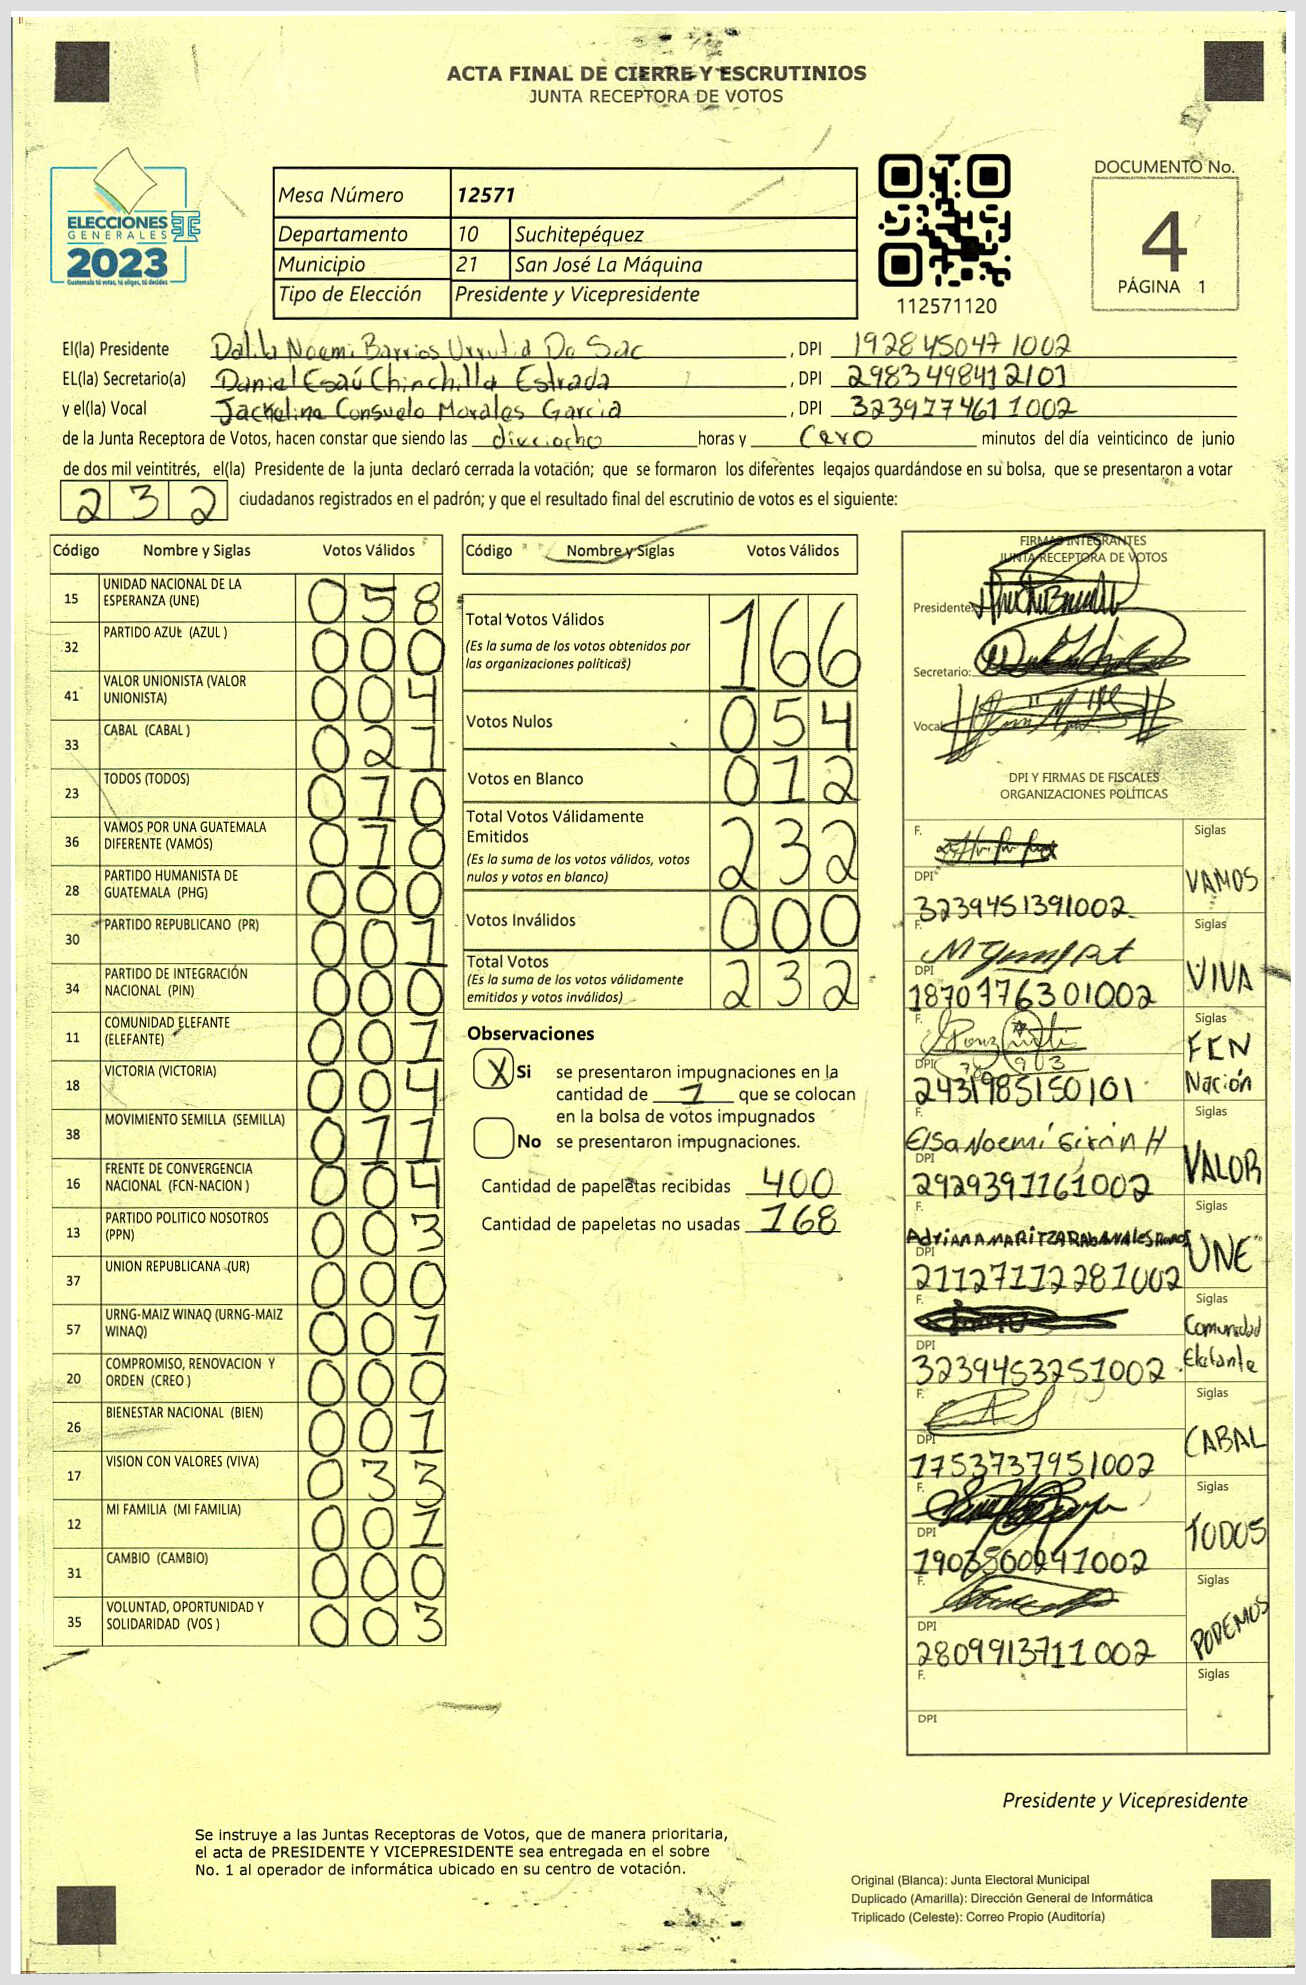 ACTA FINAL DE CIERRE Y ESCRUTINIOS
JUNTA RECEPTORA DE VOTOS
ELECCIONES
GENERALES
2023
Guatemala tú votas, tú eliges, tú decides
Mesa Número 12571
Departamento 10 Suchitepéquez
Municipio 21 San José La Máquina
Tipo de Elección Presidente y Vicepresidente
112571120
DOCUMENTO No.
4
PÁGINA 1
El(la) Presidente Dalila Noemi Barrios Urrutia De Sac , DPI 1928450471002
EL(la) Secretario(a) Daniel Esaú Chinchilla Estrada , DPI 2983498412101
y el(la) Vocal Jackeline Consuelo Morales Garcia , DPI 3239177461002
de la Junta Receptora de Votos, hacen constar que siendo las dieciocho horas y cero minutos del día veinticinco de junio
de dos mil veintitrés, el(la) Presidente de la junta declaró cerrada la votación; que se formaron los diferentes legajos guardándose en su bolsa, que se presentaron a votar
232 ciudadanos registrados en el padrón; y que el resultado final del escrutinio de votos es el siguiente:
Código Nombre y Siglas Votos Válidos
15 UNIDAD NACIONAL DE LA ESPERANZA (UNE) 058
32 PARTIDO AZUL (AZUL ) 000
41 VALOR UNIONISTA (VALOR UNIONISTA) 004
33 CABAL (CABAL ) 021
23 TODOS (TODOS) 010
36 VAMOS POR UNA GUATEMALA DIFERENTE (VAMOS) 010
28 PARTIDO HUMANISTA DE GUATEMALA (PHG) 000
30 PARTIDO REPUBLICANO (PR) 001
34 PARTIDO DE INTEGRACIÓN NACIONAL (PIN) 000
11 COMUNIDAD ELEFANTE (ELEFANTE) 001
18 VICTORIA (VICTORIA) 004
38 MOVIMIENTO SEMILLA (SEMILLA) 011
16 FRENTE DE CONVERGENCIA NACIONAL (FCN-NACION ) 004
13 PARTIDO POLITICO NOSOTROS (PPN) 003
37 UNION REPUBLICANA (UR) 000
57 URNG-MAIZ WINAQ (URNG-MAIZ WINAQ) 001
20 COMPROMISO, RENOVACION Y ORDEN (CREO ) 000
26 BIENESTAR NACIONAL (BIEN) 001
17 VISION CON VALORES (VIVA) 033
12 MI FAMILIA (MI FAMILIA) 001
31 CAMBIO (CAMBIO) 000
35 VOLUNTAD, OPORTUNIDAD Y SOLIDARIDAD (VOS ) 003
Código Nombre y Siglas Votos Válidos
Total Votos Válidos 166
(Es la suma de los votos obtenidos por
las organizaciones políticas)
Votos Nulos 054
Votos en Blanco 012
Total Votos Válidamente
Emitidos 232
(Es la suma de los votos válidos, votos
nulos y votos en blanco)
Votos Inválidos 000
Total Votos 232
(Es la suma de los votos válidamente
emitidos y votos inválidos)
Observaciones
X Si se presentaron impugnaciones en la
cantidad de 1 que se colocan
en la bolsa de votos impugnados
No se presentaron impugnaciones.
Cantidad de papeletas recibidas 400
Cantidad de papeletas no usadas 168
FIRMAS INTEGRANTES
JUNTA RECEPTORA DE VOTOS
Presidente:
Secretario:
Vocal
DPI Y FIRMAS DE FISCALES
ORGANIZACIONES POLÍTICAS
F. Siglas
DPI 3239451391002 VAMOS
F. Siglas
DPI 1870776301002 VIVA
F. Siglas
DPI 2431985150101 FCN Nación
F. Elsa Noemí Girón H Siglas
DPI 2929391161002 VALOR
F. Siglas
DPI 21127112281002 UNE
F. Siglas
DPI 3239453251002 Comunidad Elefante
F. Siglas
DPI 1753737951002 CABAL
F. Siglas
DPI 1903500241002 TODOS
F. Siglas
DPI 2809913711002 PODEMOS
F. Siglas
DPI
Presidente y Vicepresidente
Se instruye a las Juntas Receptoras de Votos, que de manera prioritaria,
el acta de PRESIDENTE Y VICEPRESIDENTE sea entregada en el sobre
No. 1 al operador de informática ubicado en su centro de votación.
Original (Blanca): Junta Electoral Municipal
Duplicado (Amarilla): Dirección General de Informática
Triplicado (Celeste): Correo Propio (Auditoría)